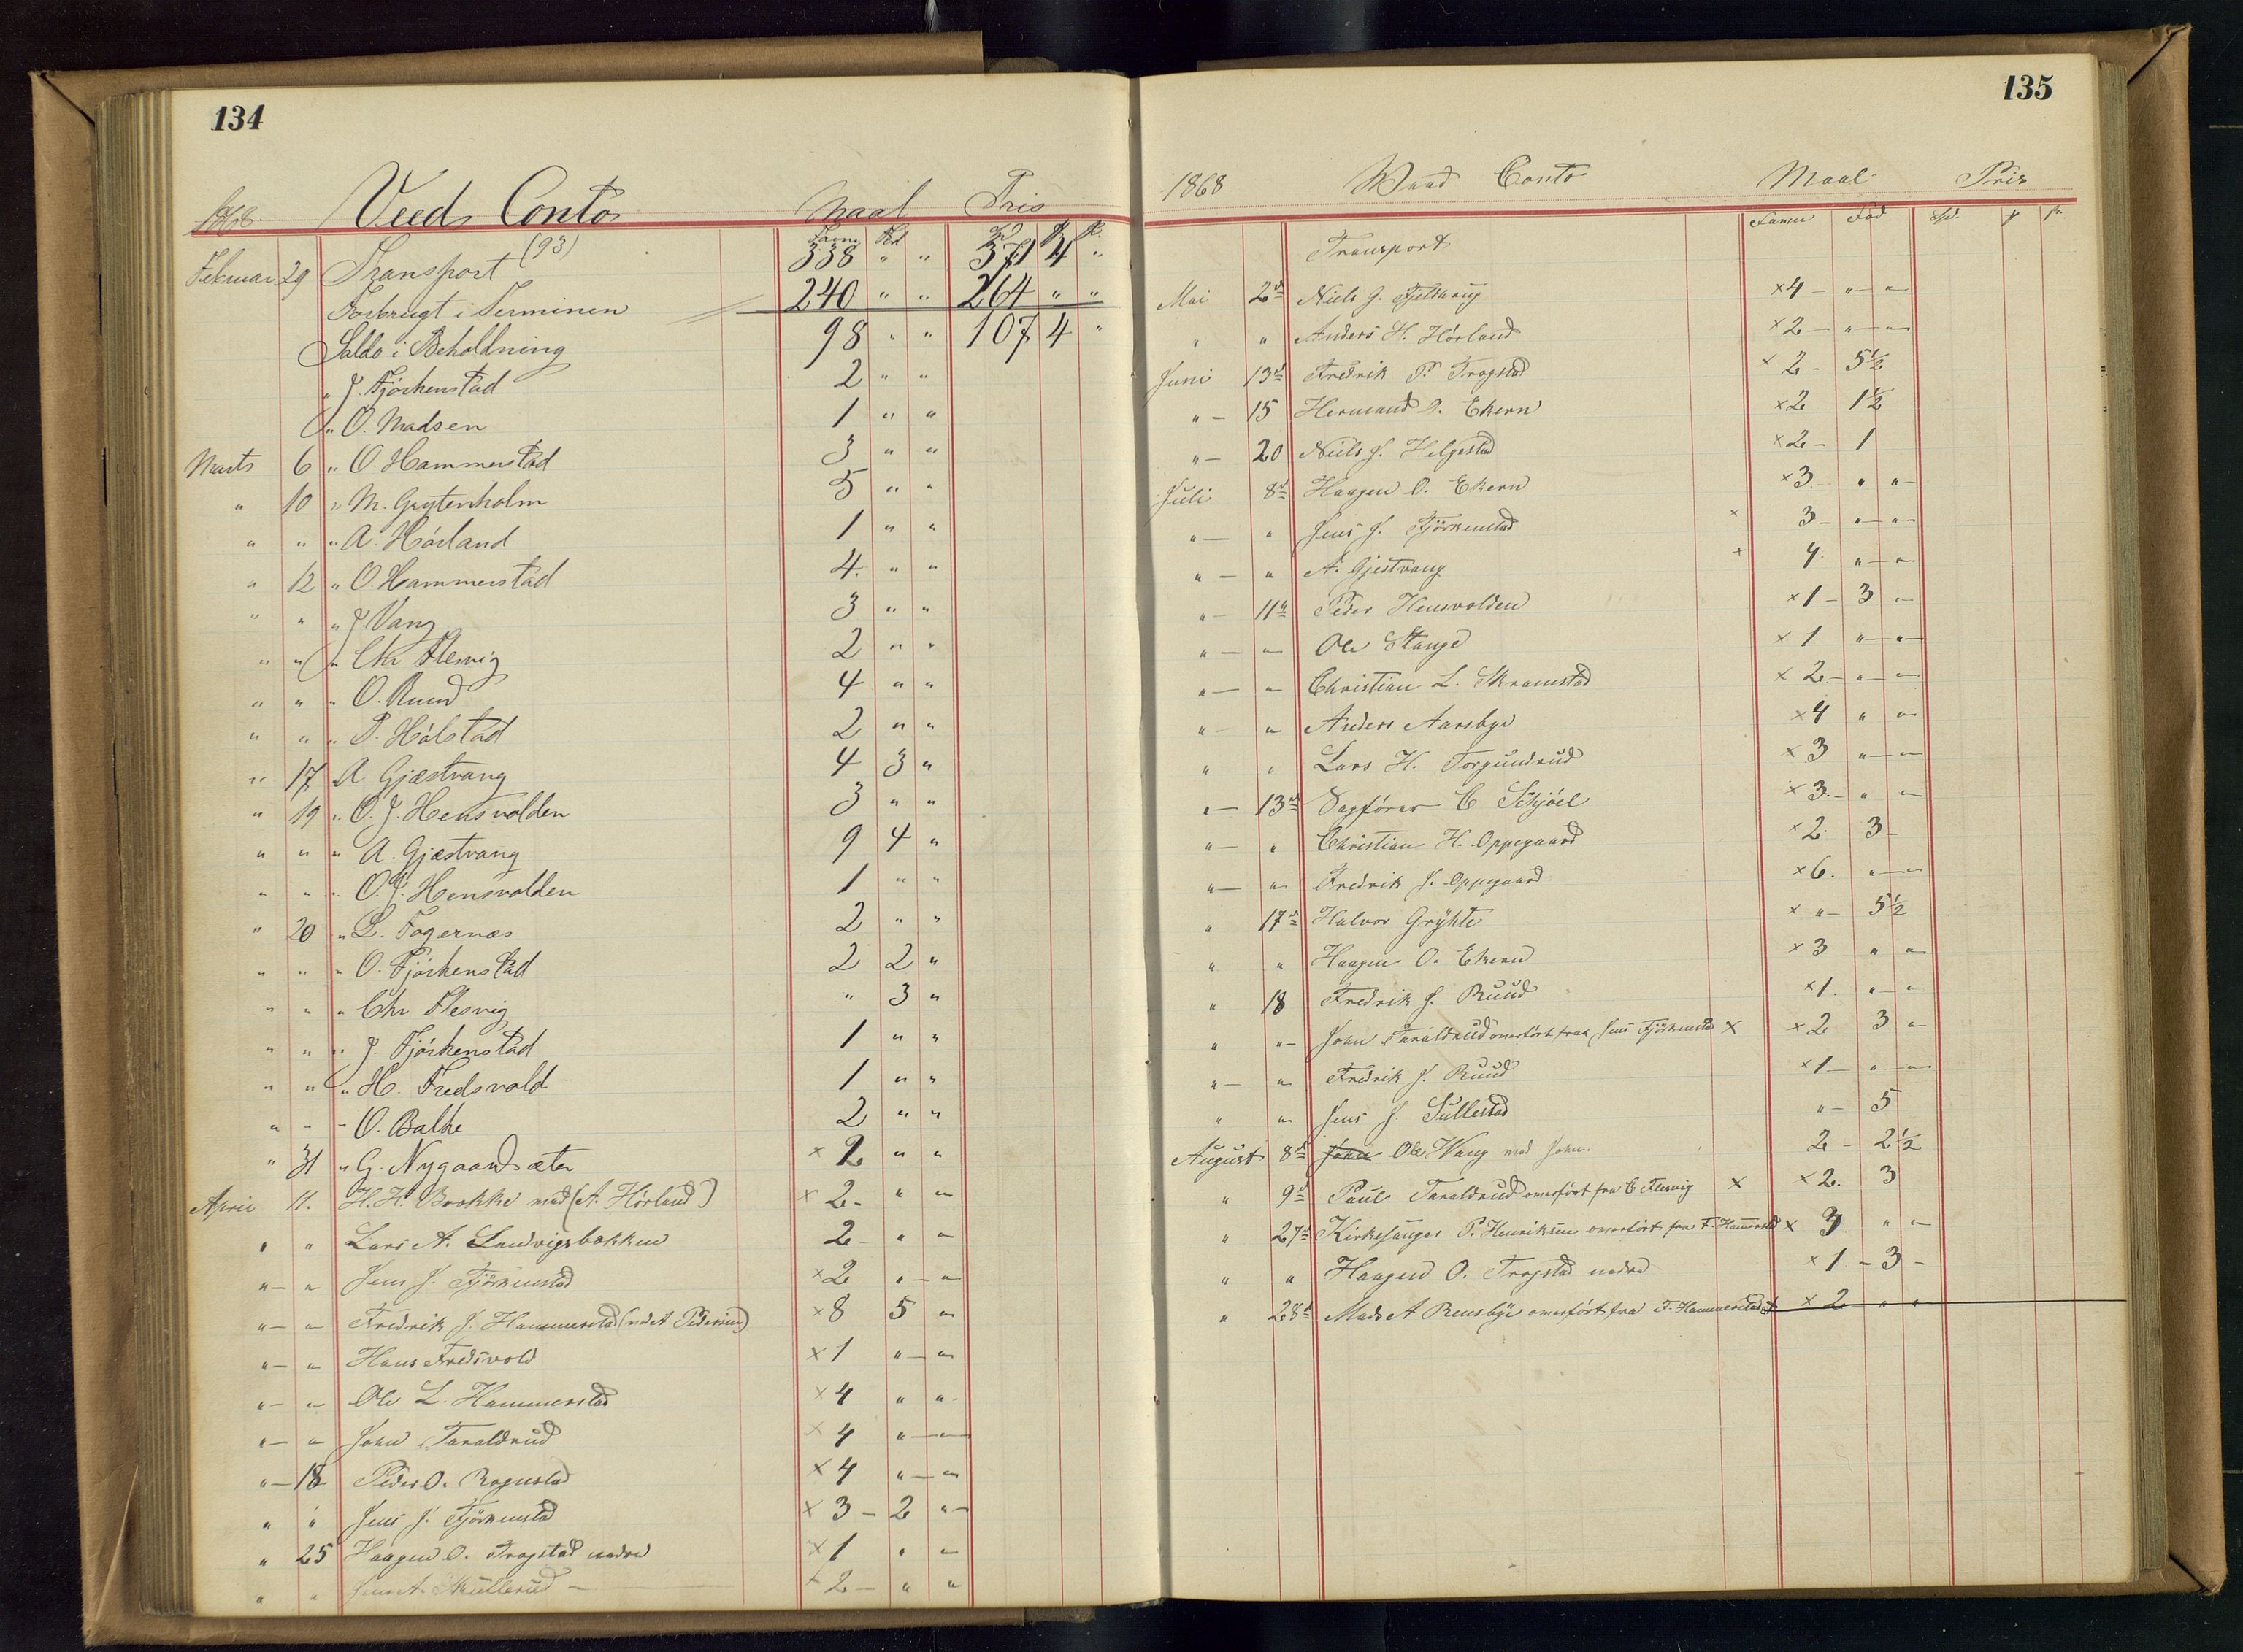 134
1868. Veed Conto Maal Pris
Favne Fod
Februar 29 Transport (93) 338 " " 371 4 "
Forbrugt i Terminen 240 " " 264 " "
Saldo i Beholdning 98 " " 107 4 "
" J. Fjörkenstad 2 " "
" O. Madsen 1 " "
Marts 6 " O. Hammerstad 3 " "
" 10 " M. Grytenholm 5 " "
" " " A. Hörland 1 " "
" 12 " O. Hammerstad 4. " "
" " " J. Vang 3 " "
" " " Chr Flesvig 2 " "
" " " O. Ruud 4 " "
" " " P. Hólstad 2 " "
" 17 " A. Gjæstvang 4 3 "
" 19 " O. J. Hensvolden 3 " "
" " " A. Gjæstvang 9 4 "
" " " O. J. Hensvolden 1 " "
" 20 " L. Fagernæs 2 " "
" " " O. Fjörkenstad 2 2 "
" " " Chr Flesvig " 3 "
" " " J. Fjörkenstad 1 " "
" " " H. Fredsvold 1 " "
" " " O. Balke 2 " "
" 31 " G. Nygaardsæter × 2 " "
April 11. H. H. Brokke ved (A. Hörland) × 2 - " "
" " Lars A. Ludvigsbakken 2 - " "
" " Jens J. Fjörkenstad × 2 " "
" " Fredrik J. Hammerstad (ved A Pedersen) × 8 5 "
" " Hans Fredsvold × 1 " "
" " Ole L. Hammerstad × 4 " "
" " John Taraldrud × 4 " "
" 18 Peder O. Rognstad × 4 " "
" " Jens J. Fjörkenstad × 3 - 2 "
" 25 Haagen O. Trogstad nedre × 1 " "
" " Jens A. Skullerud × 2 - " "
135
1868 Weed Conto Maal Pris
Favne Fod Spd. ß
Transport
Mai 2d Niels J. × 4 - " "
" " Anders H. Hörland × 2 - " "
Juni 13d Fredrik P. Trogstad × 2 - 5½
" 15 Hermand O. Ekern × 2 1½
" 20 Niels J. Helgestad × 2 - 1
Juli 8d Haagen O. Ekern × 3. " "
" " Jens J. Fjörkenstad × 3 - " "
" " A. Gjestvang × 4. " "
" 11d Peder Hensvolden × 1 - 3 "
" " Ole Stange × 1 " "
" " Christian L. Skramstad × 2 - " "
" " Anders Aarsbye × 4 " "
" " Lars H. Torgundrud × 3 " "
" 13d Sagförer C Schjöel × 3. - " "
" " Christian H. Oppegaard × 2. 3 -
" " Fredrik J. Oppegaard × 6. " "
" 17d Halvor Grÿhte × " - 5½
" " Haagen O. Ekern × 3 " "
" 18 Fredrik J. Ruud × 1. " "
" " John Taraldrud overfört fraa Jens Fjörkenstad × × 2 3 "
" " Fredrik J. Ruud × 1 - " "
" " Jens J. Sullestad " - 5
August 8d John Ole Wang med John. 2 - 2½
" 9d Paul Taraldrud overfört fra C Flesvig × × 2. 3
" 27d Kirkesanger P. Henriksen overfört fra F. Hammerstad × 3 " "
" " Haagen O. Trogstad nedre × 1 - 3 -
" 28d Mads A Rensbye overfört fra F. Hammerstad × 2 " "